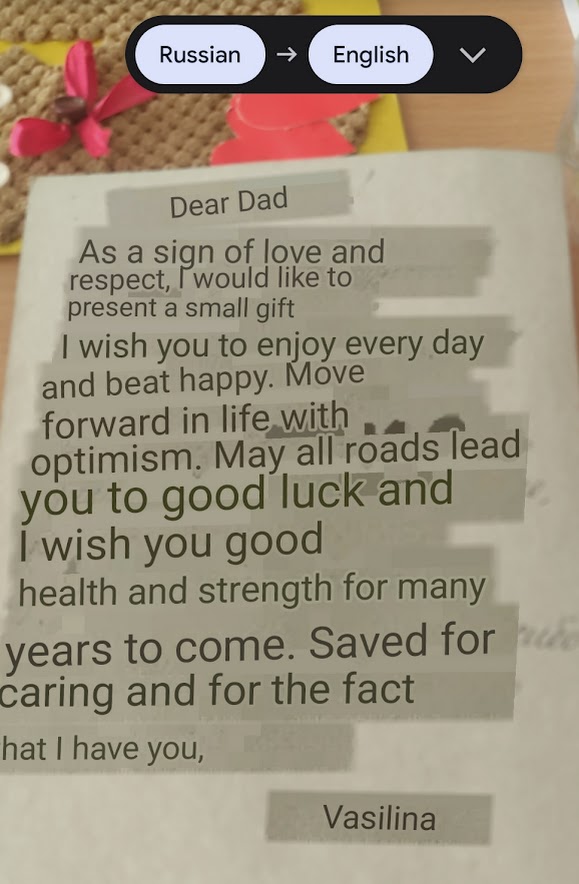 Russian → English
Dear Dad
As a sign of love and
respect, I would like to
present a small gift
I wish you to enjoy every day
and beat happy. Move
forward in life with
optimism. May all roads lead
you to good luck and
I wish you good
health and strength for many
years to come. Saved for
caring and for the fact
hat I have you,
Vasilina